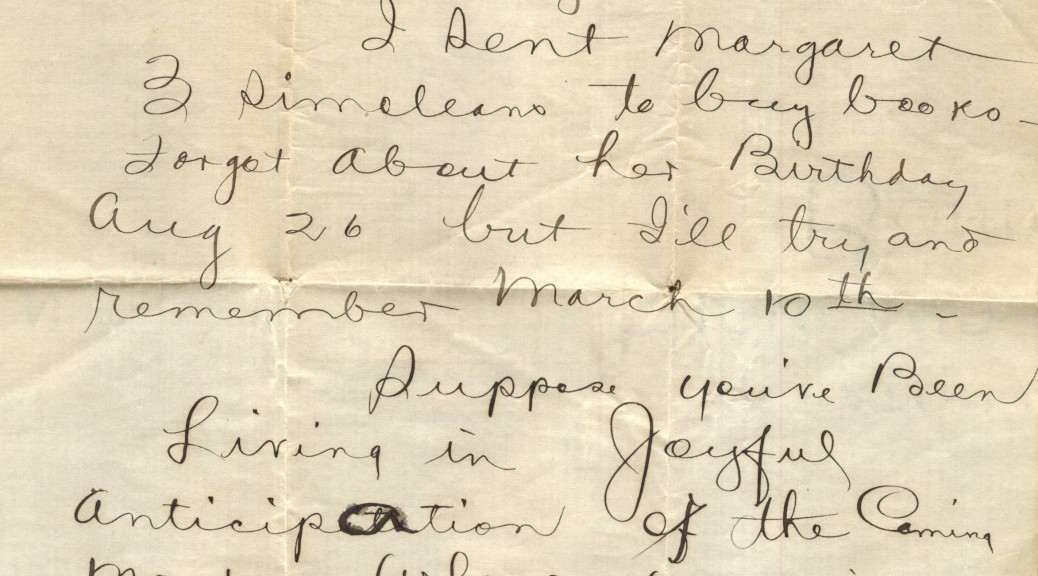 I sent Margaret
3 simoleans to buy books -
Forgot about her Birthday
Aug 26 but I'll try and
remember March 10th -
Suppose you've Been
Living in Joyful
Anticipation of the Coming